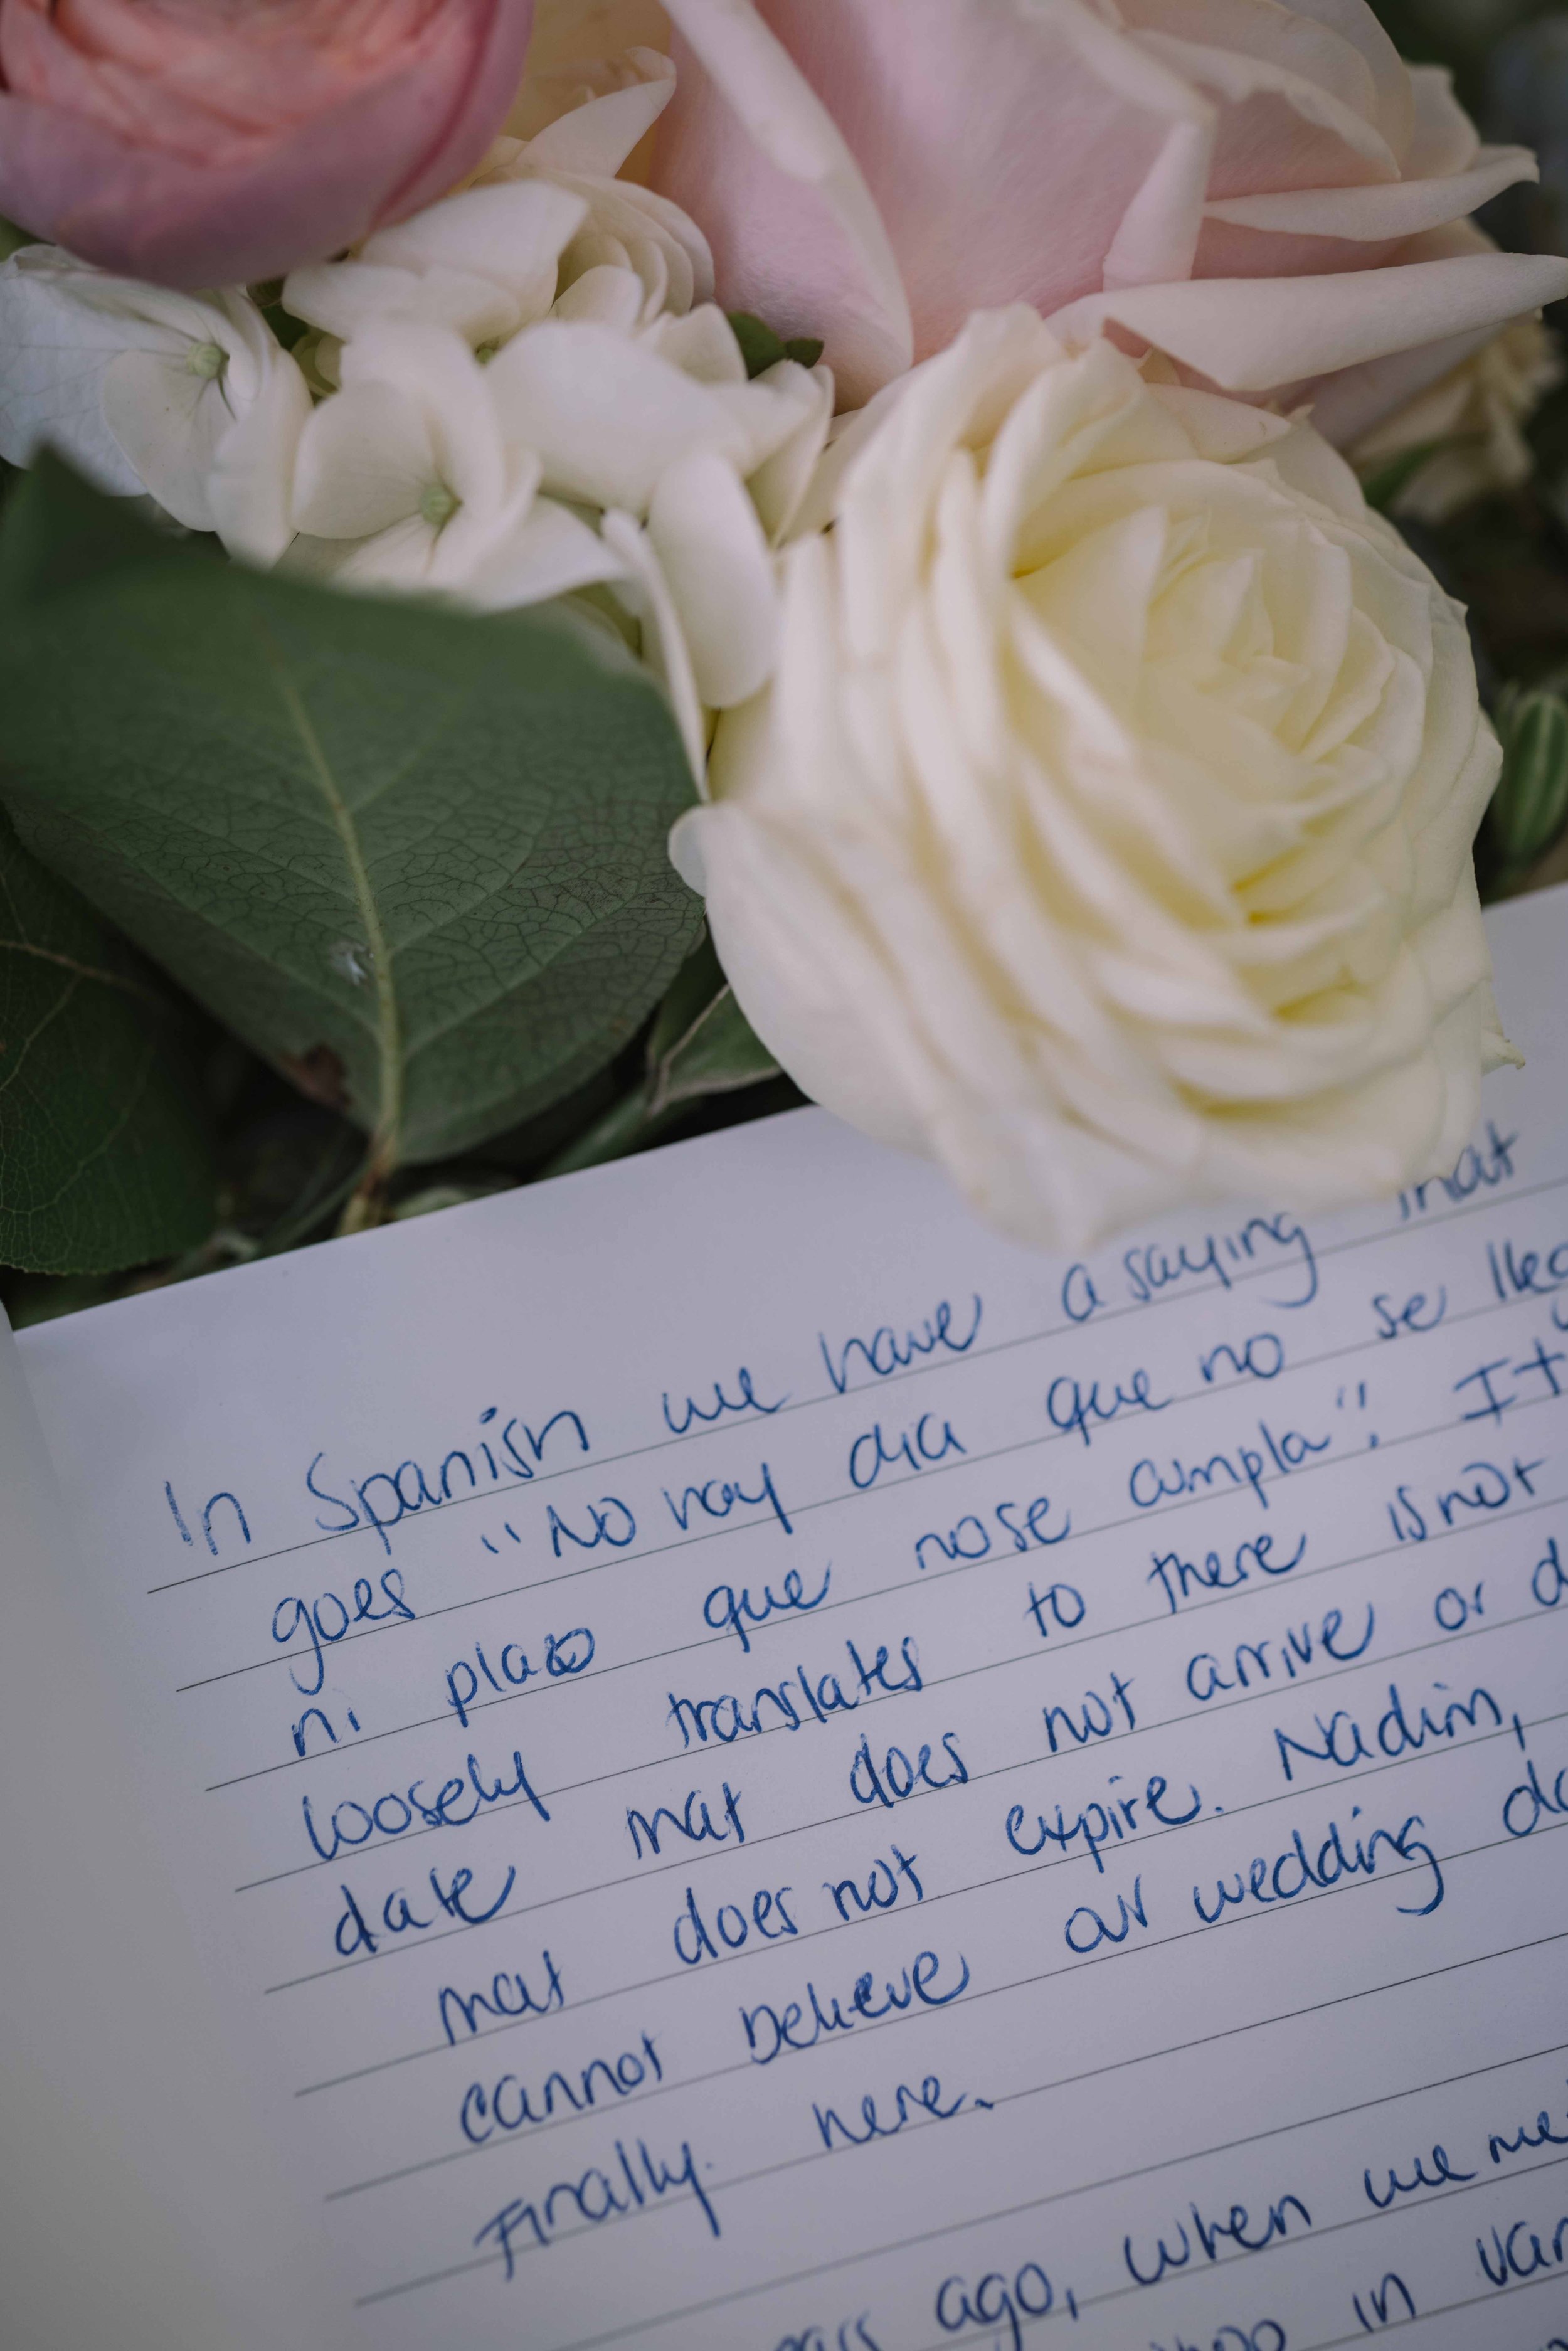 In Spanish we have a saying that
goes "No hay dia que no se lleg
ni plazo que nose cumpla". It
loosely translates to there is not
date that does not arrive or d
that does not expire. Nadim,
cannot believe our wedding da
Finally here.
ago, when we me
in van